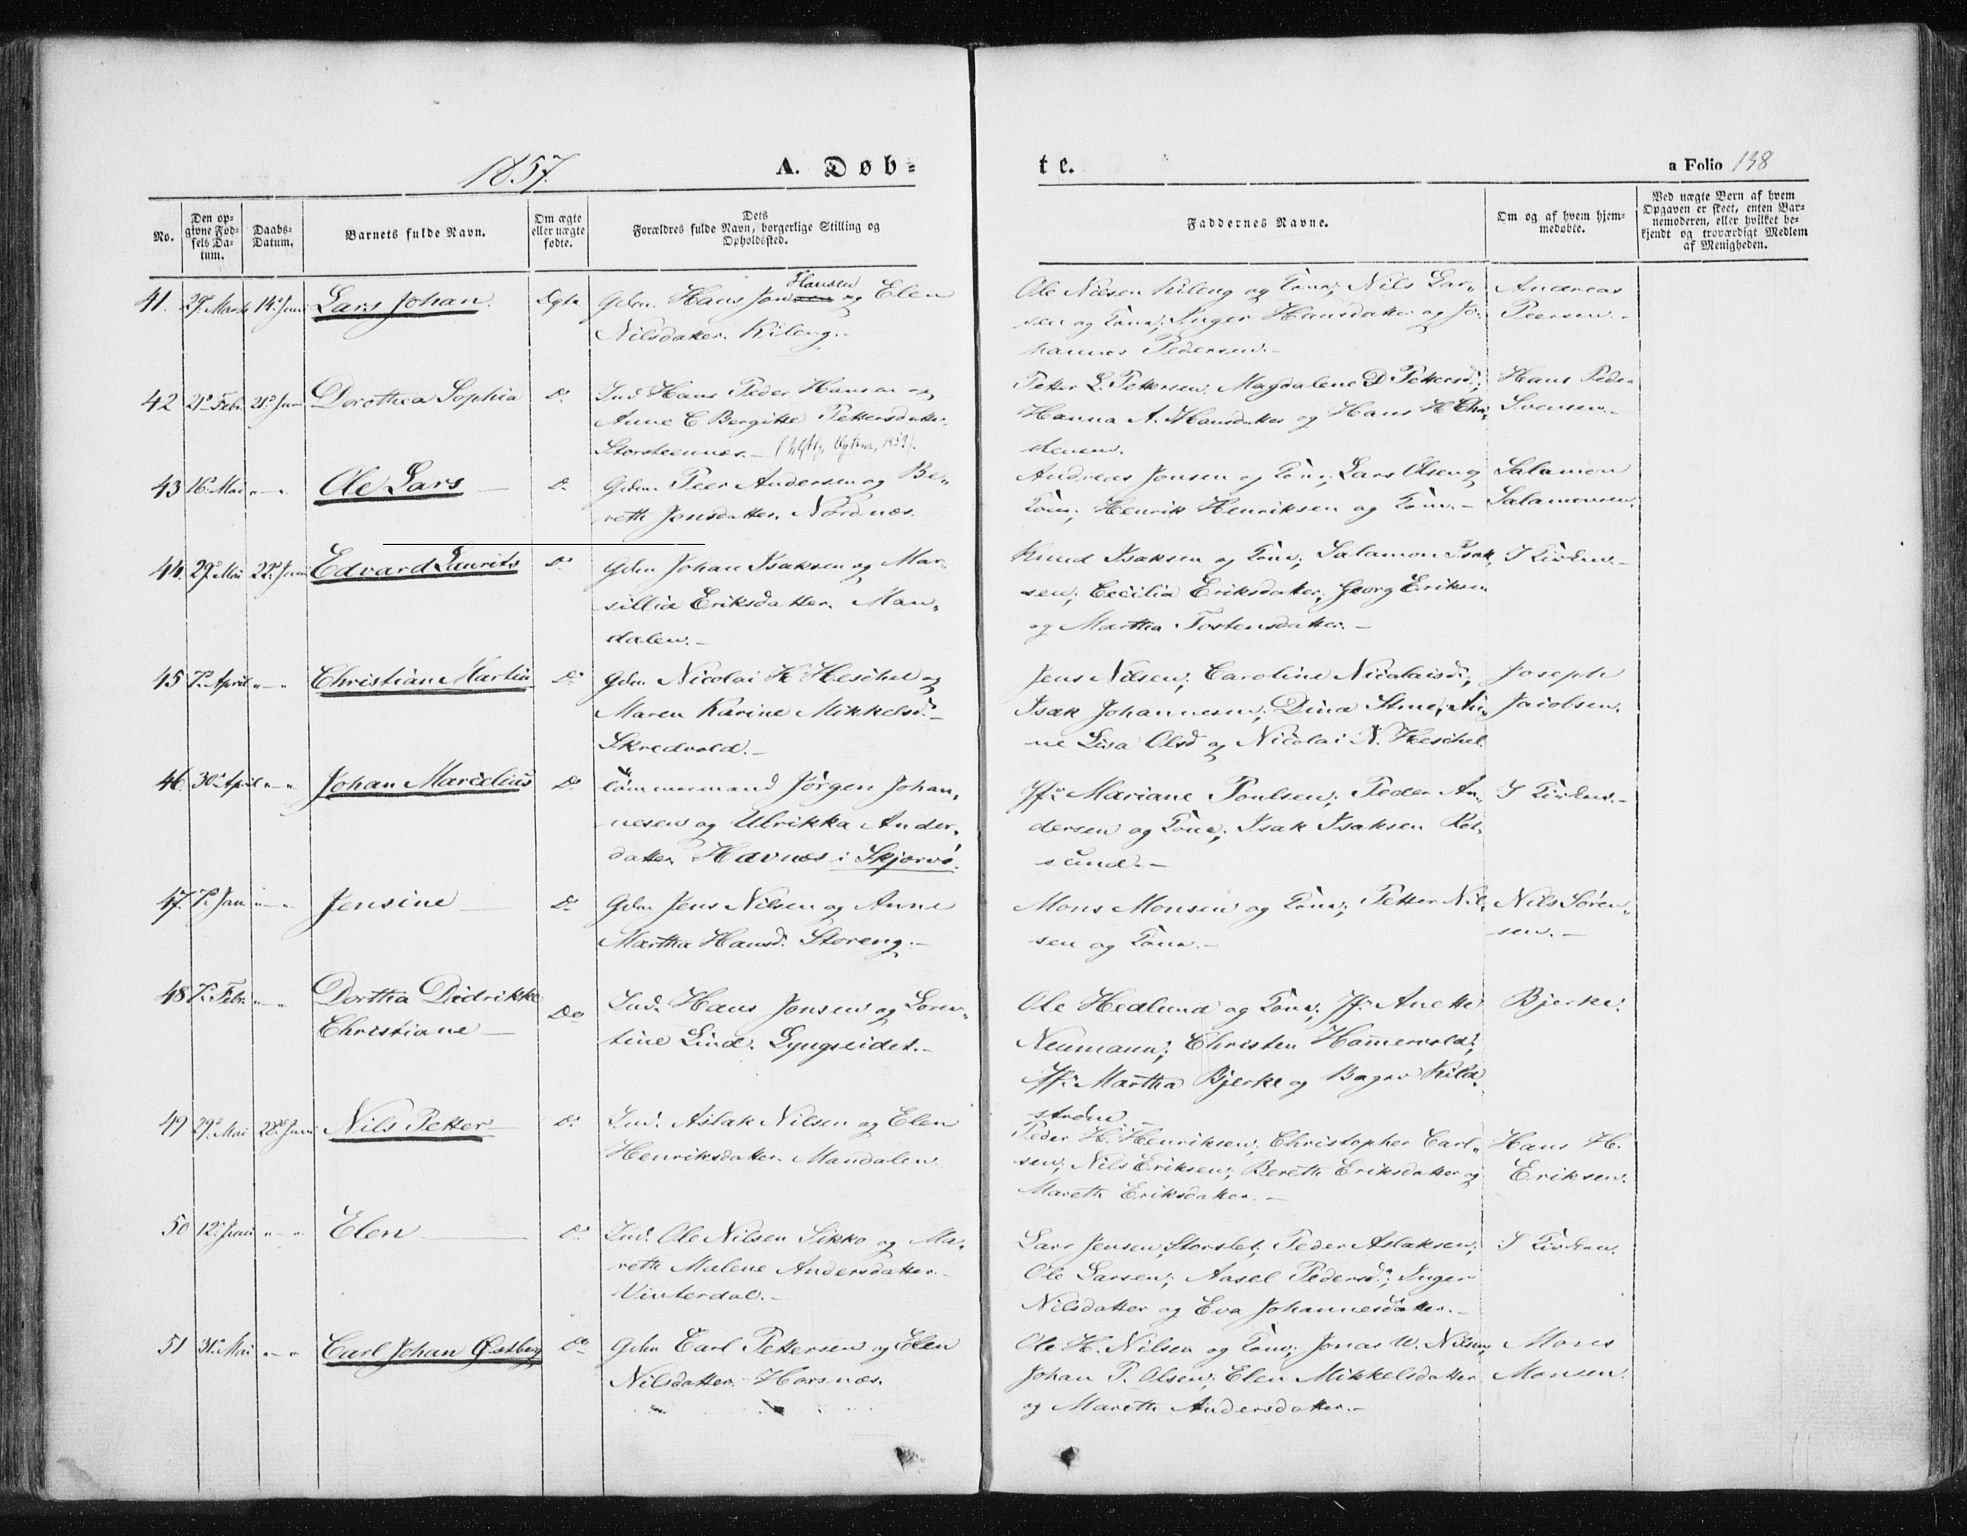 1857.
A. Døb-
te.
a Folio 138
No.
Den op-
givne Fød-
sels Da-
tum.
Daabs-
Datum.
Barnets fulde Navn.
Om ægte
eller uægte
fødte.
Dets
Forældres fulde Navn, borgerlige Stilling og
Opholdssted.
Faddernes Navne.
Om og af hvem hjem-
medøbte.
Ved uægte Børn af hvem
Opgaven er skeet, enten Bar-
nemoderen, eller hvilket be-
kjendt og troværdigt Medlem
af Menigheden.
41. 27. Marts 14. Juni Lars Johan. Ægte
Gdm. Hans Jonsen Hansen og Elen
Nilsdatter. Kileng.-
Ole Nilsen Kileng og Kone; Nils Lar-
sen og Kone; Inger Hansdatter og Jo-
hannes Pedersen.-
Andreas
Peersen.-
42 21. Febr. 21. Juni Dorothea Sophia Do
Ind. Hans Peder Hansen og
Anne C Bergitte Pettersdatter.
Storsteennæs.-
Petter L. Pettersen; Magdalene D. Pettersd.;
Hanna A. Hansdatter og Hans H Chri-
stensen.
Hans Peder
Svensen.-
43 16. Mai " - " Ole Lars - Do
Gdm. Peer Andersen og Be-
reth Jensdatter. Nordnæs.
Andreas Jonsen og Kone; Lars Olsen og
Kone; Henrik Henriksen og Kone.-
Salamon
Salamonsen.
44. 29. Mai 22. Juni Edvard Laurits Do
Gdm Johan Isaksen og Mar-
sillia Eriksdatter. Man-
dalen.-
Knud Isaksen og Kone; Salamon Isak-
sen; Cecilia Eriksdatter; Georg Eriksen
og Martha Tostensdatter.-
I Kirken.-
45 7. April " - " Christian Martin Do
Gdm Nicolai H Heschel og
Maren Karine Mikkelsd.-
Skredvold.-
Jens Nilsen; Caroline Nicolaisd.;
Isak Johannesen; Dina Stine; An-
ne Lisa Olsd og Nicolai N. Heschel.
Joseph
Jacobsen.
46 30. April " - " Johan Marcelius Do
Tømmermand Jørgen Johan-
nesen og Ulrikka Ander-
datter Havnæs i Skjervø.
Jfr. Mariane Poulsen; Peder An-
dersen og Kone; Isak Isaksen Rot-
sund.-
I Kirken.-
47. 7. Jan " - " Jensine - Do
Gdm Jens Nilsen og Anne
Martha Hansd. Storeng.-
Mons Monsen og Kone; Petter Nil-
sen og Kone.-
Nils Søren-
sen.-
48 7. Febr. " - " Dorthea Didrikke
Christiane - Do
Ind. Hans Jonsen og Loren-
tine Lind. Lyngseidet.-
Ole Hedlund og Kone; Jfr. Anette
Neumann; Christen Hammervold;
Jfr. Martha Bjerke og Bager Kild-
strøm.-
Bjerke.
49 29. Mai 28. Juni Nils Petter Do
Ind. Aslak Nilsen og Elen
Henriksdatter. Mandalen
Peder H. Henriksen; Christopher Carl-
sen; Nils Eriksen; Bereth Eriksdatter og
Mareth Eriksdatter.-
Hans H.
Eriksen.
50 12. Juni " - " Elen - Do
Ind. Ole Nilsen Sikko og Ma-
reth Malene Andersdatter.
Vinterdal.-
Lars Jensen Storslet; Peder Aslaksen;
Ole Larsen; Aasel Pedersd.; Inger
Nilsdatter og Eva Johannesdatter.-
I Kirken.
51 31. Mai " - " Carl Johan Østberg Do
Gdm Carl Pettersen og Elen
Nilsdatter. Horsnæs.
Ole H. Nilsen og Kone; Jonas W. Nilsen;
Johan P. Olsen; Elen Mikkelsdatter
og Mareth Andersdatter.-
Mons
Monsen.